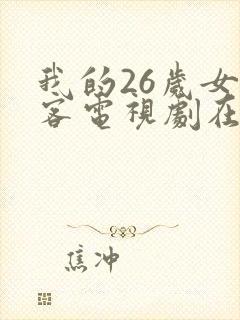 我的26歲女
客電視劇在
焦冲